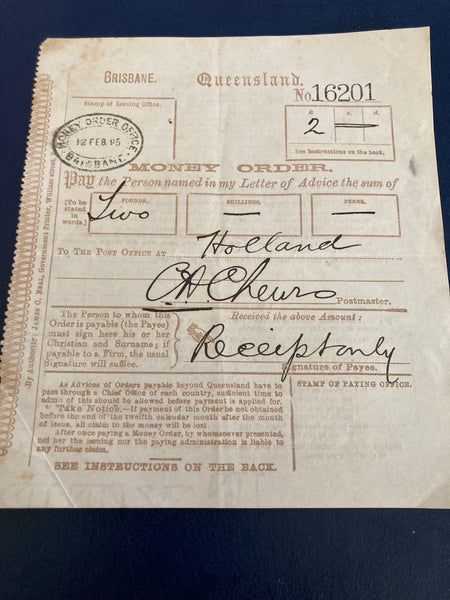 BRISBANE. Queensland.
No. 16201
Stamp of Issuing Office.
MONEY ORDER OFFICE
12 FEB. 95
BRISBANE
£ s. d.
2 — —
See Instructions on the back.
MONEY ORDER.
Pay the Person named in my Letter of Advice the sum of
[To be stated in words.]
POUNDS. SHILLINGS. PENCE.
Two — —
TO THE POST OFFICE AT Holland
Postmaster.
The Person to whom this
Order is payable (the Payee)
must sign here his or her
Christian and Surname; if
payable to a Firm, the usual
Signature will suffice.
Received the above Amount:
Receipt only
Signature of Payee.
As Advices of Orders payable beyond Queensland have to
pass through a Chief Office of each country, sufficient time to
admit of this should be allowed before payment is applied for.
Take Notice.—If payment of this Order be not obtained
before the end of the twelfth calendar month after the month
of issue, all claim to the money will be lost.
After once paying a Money Order, by whomsoever presented,
neither the issuing nor the paying administration is liable to
any further claim.
STAMP OF PAYING OFFICE.
SEE INSTRUCTIONS ON THE BACK.
By Authority: JAMES C. BEAL, Government Printer, William street,